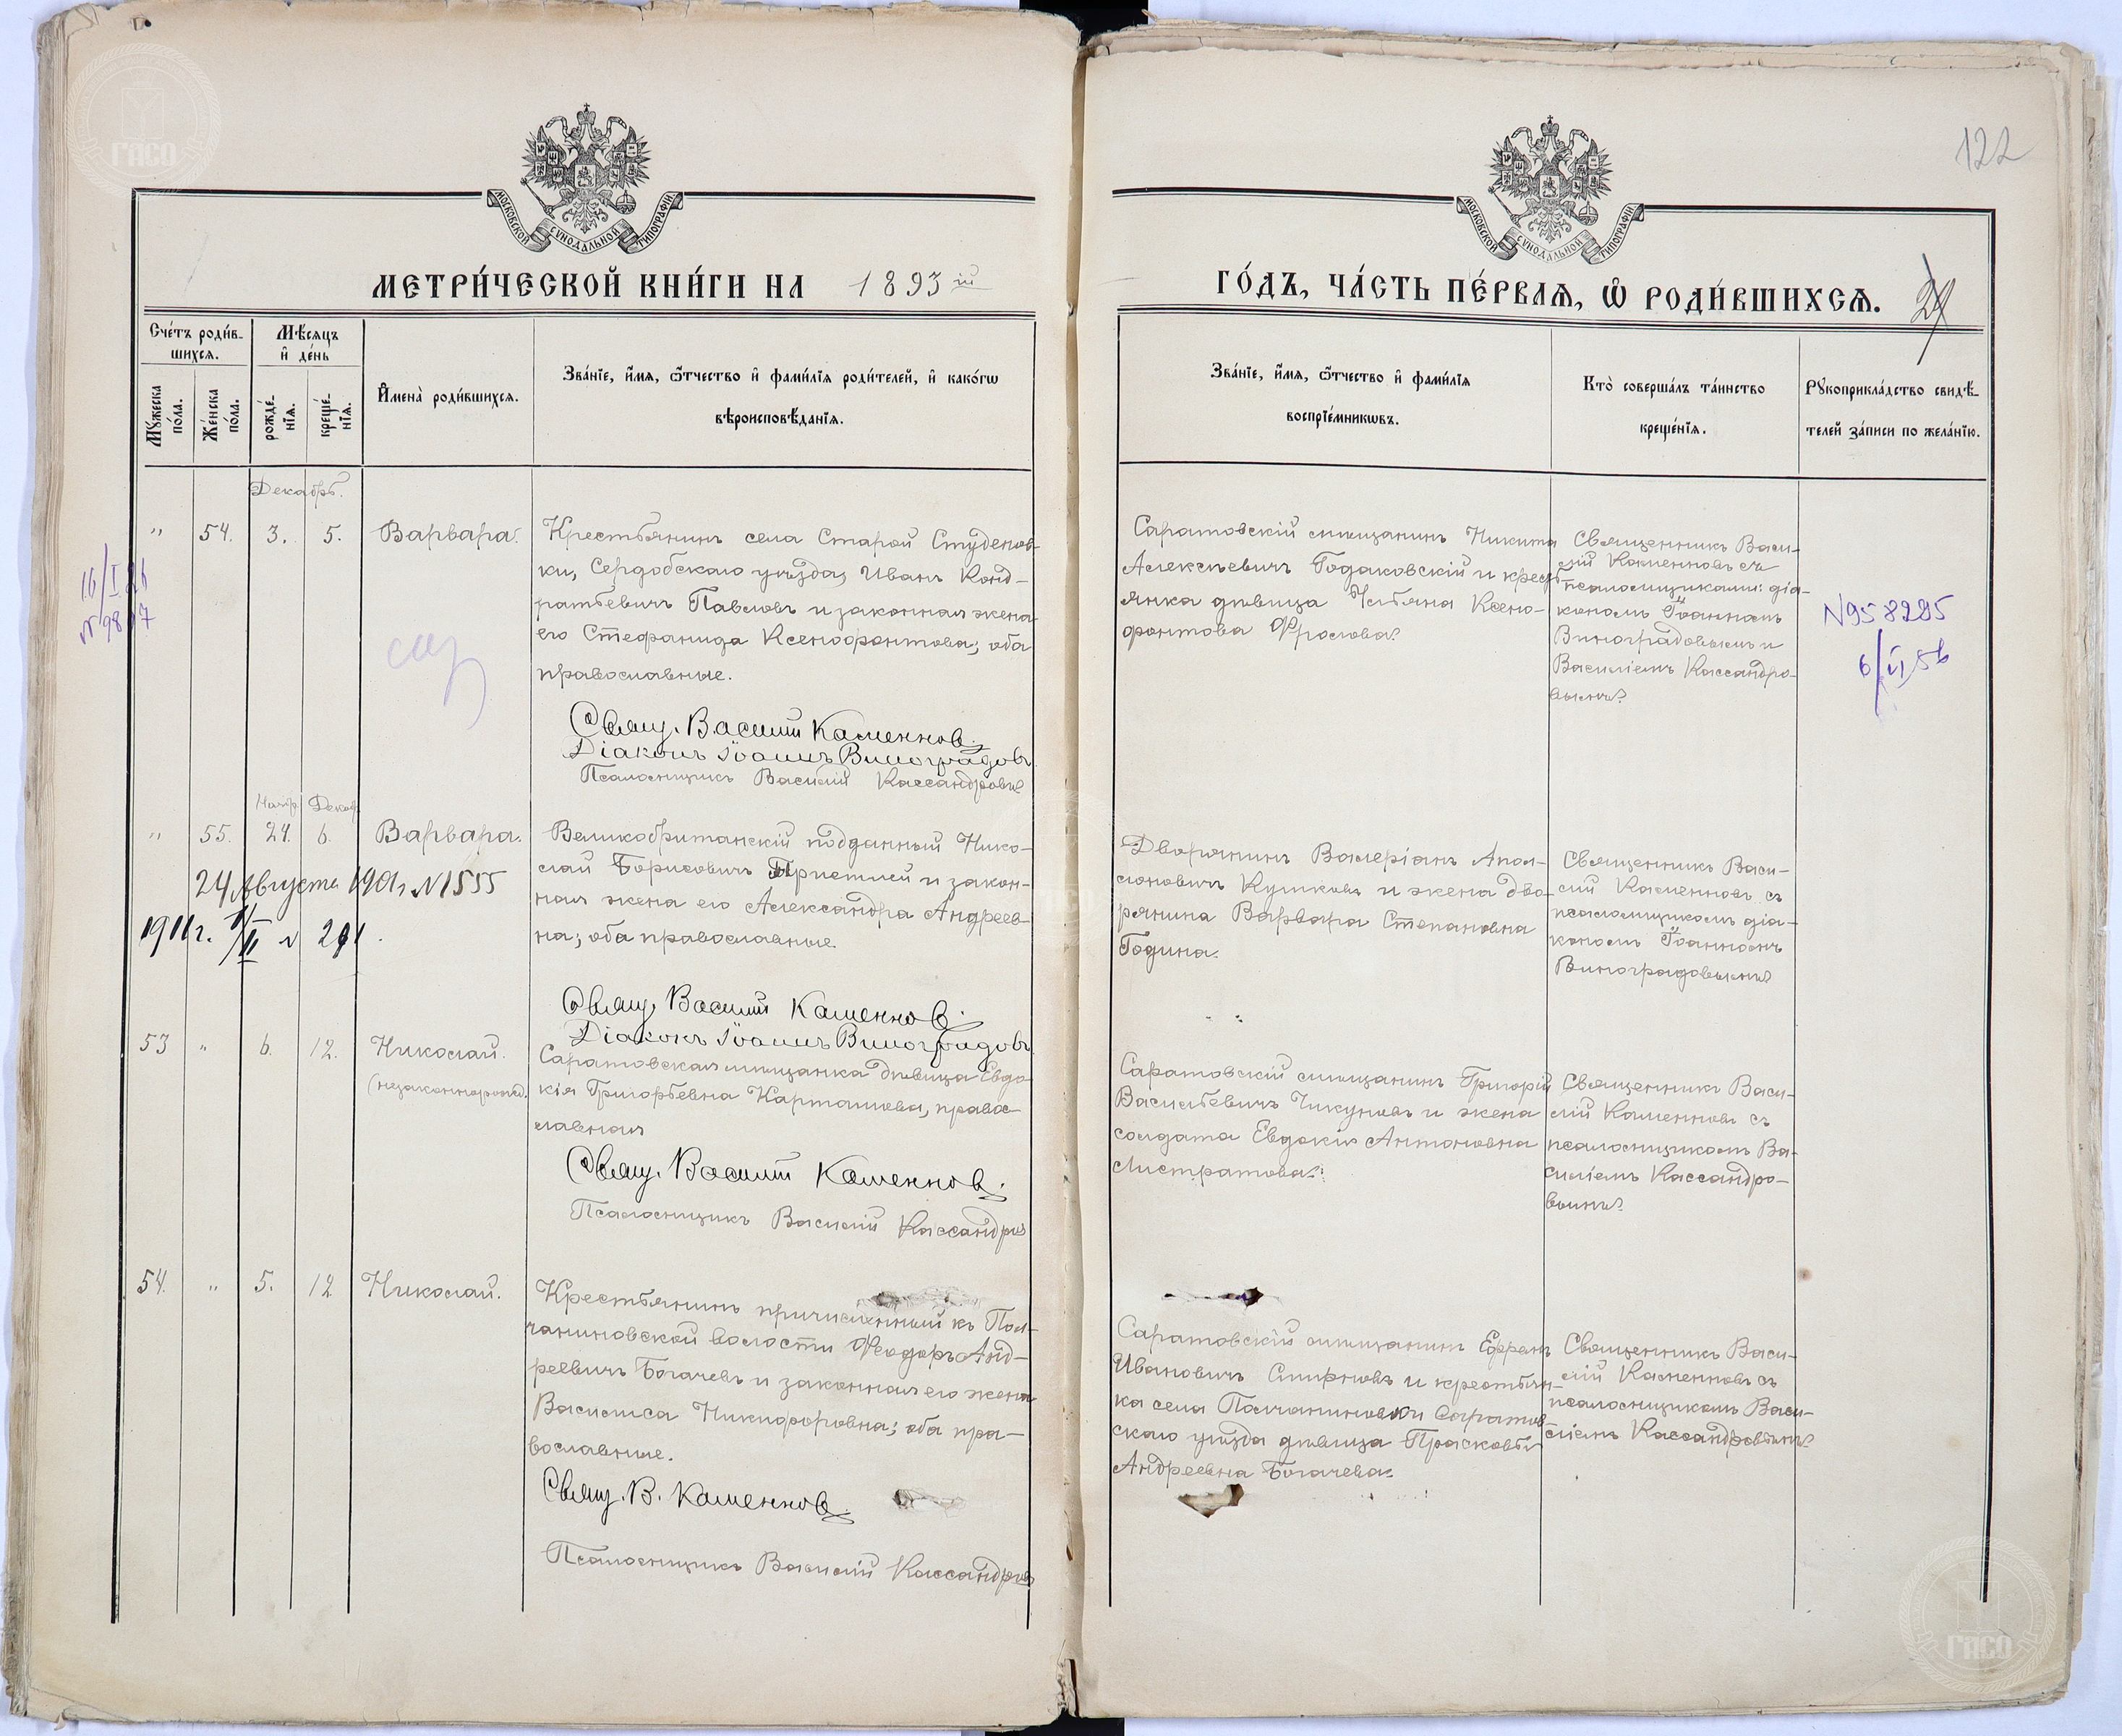 ГАСО
122
МОСКОВСКОЙ СѴНОДАЛЬНОЙ ТИПОГРАФІИ
МОСКОВСКОЙ СѴНОДАЛЬНОЙ ТИПОГРАФІИ
МЕТРИ́ЧЕСКОЙ КНИ́ГИ НА 1893 ій
ГО́ДЪ, ЧА́СТЬ ПЕ́РВАЯ, Ѽ РОДИ́ВШИХСЯ.
Сче́тъ роди́в-
шихся.
Мѣ́сяцъ
и де́нь
Мꙋ́жеска
по́ла.
Же́нска
по́ла.
рожде́-
нія.
креще́-
нія.
Имена̀ роди́вшихся.
Зва́ніе, и́мя, ѻ́тчество и фами́лія роди́телей, и како́гѡ
вѣроисповѣ́данія.
Зва́ніе, и́мя, ѻ́тчество и фами́лія
воспріе́мникѡвъ.
Кто̀ соверша́лъ та́инство
креще́нія.
Рꙋкоприкла́дство свидѣ́-
телей за́писи по жела́нію.
Декабрь.
" 54. 3. 5. Варвара.
Крестьянинъ села Старой Студенов-
ки, Сердобскаго уѣзда, Иванъ Конд-
ратьевичъ Павловъ и законная жена
его Стефанида Ксенофонтова; оба
православные.
Свящ. Василій Каменновъ
Діаконъ Іоаннъ Виноградовъ
Псаломщикъ Василій Кассандровъ
Саратовскій мѣщанинъ Никита
Алексѣевичъ Годаковскій и кресть-
янка дѣвица Ксено-
фонтова Фролова.
Священникъ Васи-
лій Каменновъ съ
псаломщиками: діа-
кономъ Іоанномъ
Виноградовымъ и
Василіемъ Кассандро-
вымъ.
N958285
6/VI 56
Нояб. Декаб.
" 55. 24. 6. Варвара.
24 Августа 1901 г. N1555
1911 г.
Великобританскій подданный Нико-
лай Борисовичъ и закон-
ная жена его Александра Андреев-
на; оба православные.
Свящ. Василій Каменновъ.
Діаконъ Іоаннъ Виноградовъ
Дворянинъ Валеріанъ Апол-
лоновичъ Кушковъ и жена дво-
рянина Варвара Степановна
Година.
Священникъ Васи-
лій Каменновъ съ
псаломщикомъ діа-
кономъ Іоанномъ
Виноградовымъ
53 " 6. 12. Николай.
(незаконнорожд.)
Саратовская мѣщанка дѣвица Евдо-
кія Григорьевна Карташева, право-
славная
Свящ. Василій Каменновъ.
Псаломщикъ Василій Кассандровъ
Саратовскій мѣщанинъ Григорій
Васильевичъ Чикуновъ и жена
солдата Евдокія Антоновна
Листратова.
Священникъ Васи-
лій Каменновъ съ
псаломщикомъ Ва-
силіемъ Кассандро-
вымъ.
54. " 5. 12 Николай.
Крестьянинъ причисленный къ Пол-
чаниновской волости Ѳеодоръ Анд-
реевичъ Богачевъ и законная его жена
Василиса Никифоровна; оба пра-
вославные.
Свящ. В. Каменновъ
Псаломщикъ Василій Кассандровъ
Саратовскій мѣщанинъ Ефремъ
Ивановичъ Смирновъ и крестьян-
ка села Полчаниновки Саратов-
скаго уѣзда дѣвица Прасковья
Андреевна Богачева.
Священникъ Васи-
лій Каменновъ съ
псаломщикомъ Васи-
ліемъ Кассандровымъ.
ГАСО